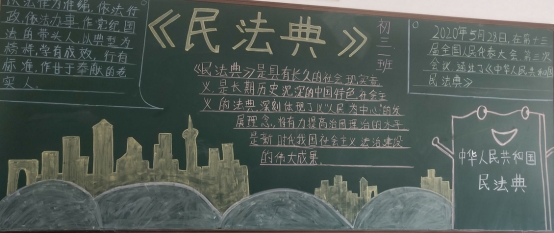 依法行
政、依法办事、作实践国
法的带头人,以典型为
榜样,学有成效,行有
标准,作甘于奉献的老
实人。
《民法典》
初三 班
《民法典》是具有长久的社会现实意
义,是长期历史沉淀的中国特色社会主
义的法典,深刻体现了以"人民为中心"的发
展理念,将有力提高治国理治的水平
是新时代我国社会主义法治建设
的伟大成果。
2020年5月28日,在第十三
届全国人民代表大会第三次
会议,通过了《中华人民共和国
民法典》
中华人民共和国
民法典